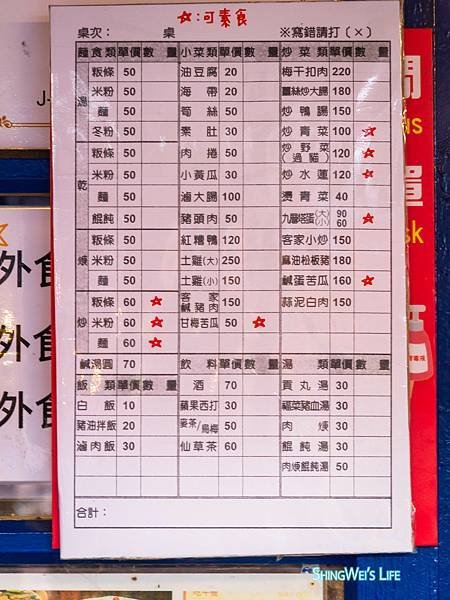 ☆:可素食
桌次: 桌 ※寫錯請打(×)
麵食類 單價 數量 小菜類 單價 數量 炒菜類 單價 數量
湯 粄條 50 油豆腐 20 梅干扣肉 220
米粉 50 海帶 20 薑絲炒大腸 180
麵 50 筍絲 50 炒鴨腸 150
冬粉 50 素肚 30 炒青菜 100 ☆
乾 粄條 50 肉捲 50 炒野菜(過貓) 120 ☆
米粉 50 小黃瓜 30 炒水蓮 120 ☆
麵 50 滷大腸 100 燙青菜 40
餛飩 50 豬頭肉 50 九層塔蛋(大)(小) 90 60 ☆
焿 粄條 50 紅糟鴨 120 客家小炒 150
米粉 50 土雞(大) 250 麻油松板豬 180
麵 50 土雞(小) 150 鹹蛋苦瓜 160 ☆
炒 粄條 60 ☆ 客家鹹豬肉 150 蒜泥白肉 150
米粉 60 ☆ 甘梅苦瓜 50 ☆
麵 60 ☆
鹹湯圓 70 飲料 單價 數量 湯類 單價 數量
飯類 單價 數量 酒 70 貢丸湯 30
白飯 10 蘋果西打 30 福菜豬血湯 30
豬油拌飯 20 麥茶/烏梅 50 肉焿 30
滷肉飯 30 仙草茶 60 餛飩湯 30
肉焿餛飩湯 50
合計:
外食
外食
外食
單
SHINGWEI'S LIFE